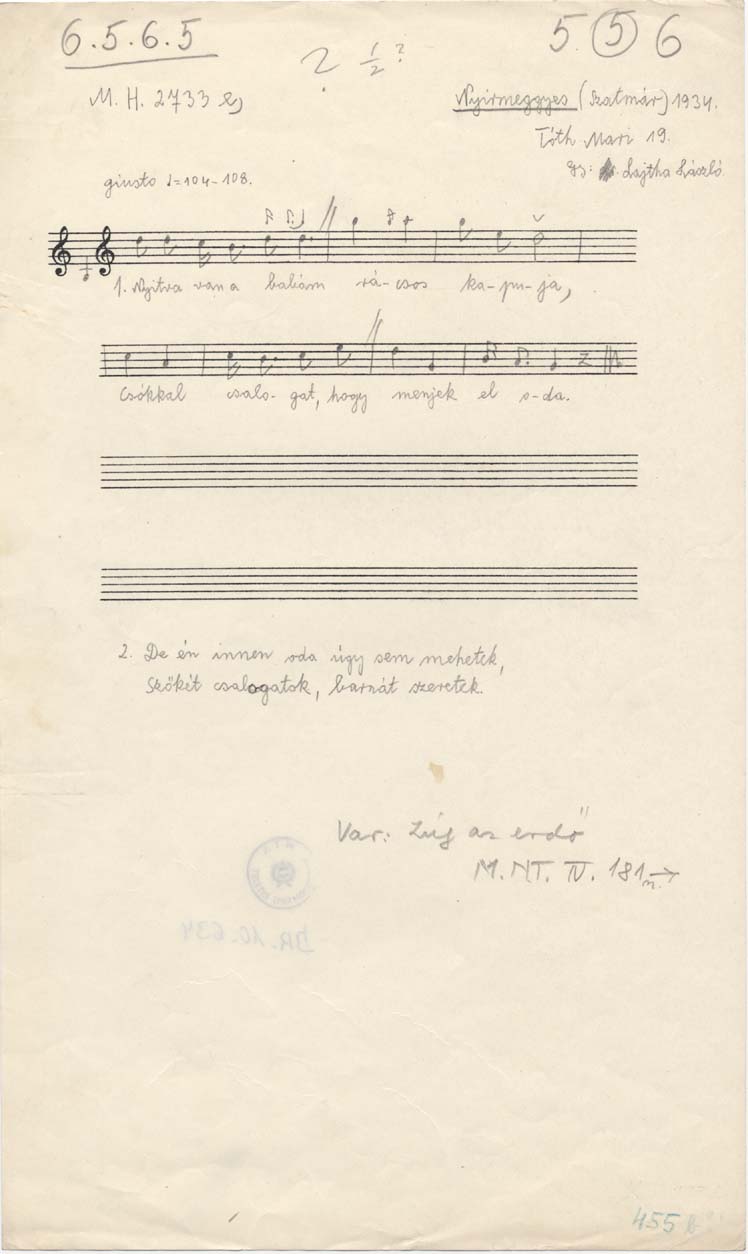 6.5.6.5
? 1/2 ?
5 5 6
M. H. 2733 e,
Nyirmeggyes (Szatmár) 1934.
Tóth Mari 19.
Gy: Lajtha László
giusto ♩=104–108.
1. Nyitva van a babám rá-csos ka-pu-ja,
Csókkal csalo-gat, hogy menjek el o-da.
2. De én innen oda úgy sem mehetek,
Szőkét csalogatok, barnát szeretek.
Var: Zúg az erdő
M.NT. IV. 181 →
BR. 10.634
455